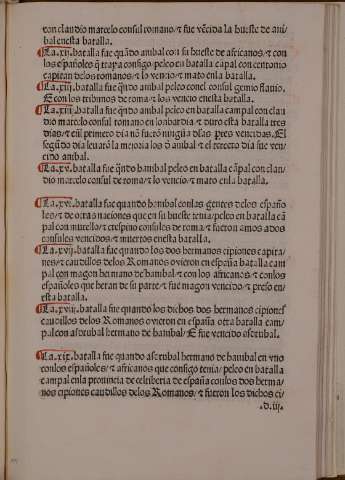 con claudio marcelo consul romano/ ⁊ fue vẽcida la hueste de ani
bal enesta batalla.
¶ La .xij. batalla fue quãdo anibal con su hueste de africanos ⁊ con
los españoles q̃ traya consigo peleo en batalla cãpal con centonio
capitan delos romanos/ ⁊ lo vencio/ ⁊ mato enla batalla.
¶ La .xiij. batalla fue q̃ndo anibal peleo conel consul gemio flauio.
E con los tribunos de roma/ ⁊ los vencio enesta batalla.
¶ La .xiiij. batalla fue q̃ndo anibal peleo en batalla campal con clau
dio marcelo consul romano en lonbardia/ ⁊ duro esta batalla tres
dias/ ⁊ eñl primero dia nõ fuerõ ningũa dẽlas p̃tes vencidas. El
segũdo dia leuarõ la mejoria los ð anibal/ ⁊ el tercero dia fue ven-
cido anibal.
¶ La .xv. batalla fue q̃ndo hanibal peleo en batalla cãpal con clau
dio marcelo consul de roma/ ⁊ lo vencio/ ⁊ mato enla batalla.
¶ La .xvj. batalla fue quando hanibal conlas gentes delos españo
les/ ⁊ de otras naciones que en su hueste tenia/ peleo en batalla cã
pal con murello/ ⁊ crespino consules de roma/ ⁊ fueron amos ados
consules vencidos/ ⁊ muertos enesta batalla.
¶ La .xvij. batalla fue quando los dos hermanos cipiones capita
nes/ ⁊ caudillos delos Romanos ovieron en españa batalla cam
pal con magon hermano de hanibal/ ⁊ con los africanos/ ⁊ conlos
españoles que heran de su parte/ ⁊ fue magon vencido/ ⁊ preso en
esta batalla.
¶ La .xviij. batalla fue quando los dichos dos hermanos cipiones
caudillos delos Romanos ovieron en españa otra batalla cam/
pal con asdrubal hermano de hanibal/ E fue vencido asdrubal.
¶ La .xix. batalla fue quando asdrubal hermano de hanibal en vno
conlos españoles/ ⁊ africanos que consigo tenia/ peleo en batalla
campal enla prouincia de celtiberia de españa conlos dos herma/
nos cipiones caudillos delos Romanos/ ⁊ fueron los dichos ci/
.d. iij.